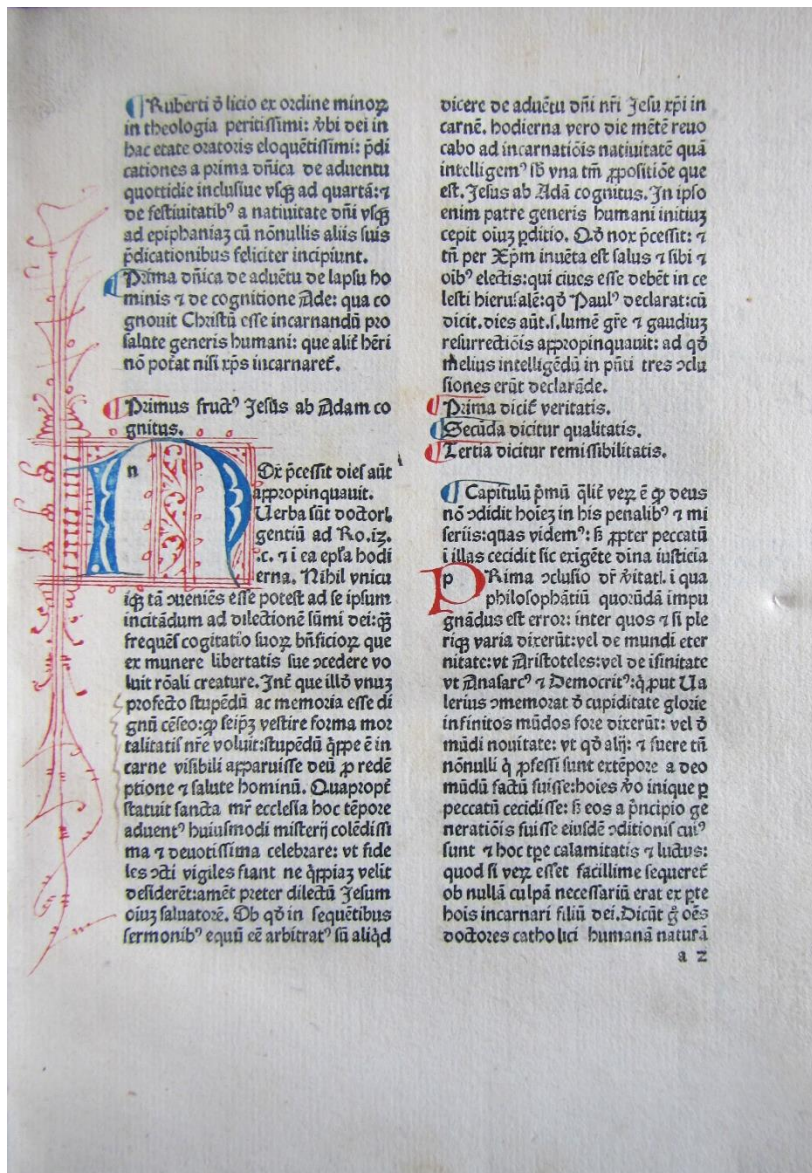 Ruberti ꝺ̄ licio ex ordine minoꝝ
in theologia peritissimi: v̄bi dei in
hac etate oratoris eloquētissimi: p̄di
cationes a prima dn̄ica de aduentu
quottidie inclusiue vsqꝫ ad quartā: ⁊
de festiuitatibꝰ a natiuitate dn̄i vsqꝫ
ad epiphaniaꝫ cū nōnullis aliis suis
p̄dicationibus feliciter incipiunt.
Prima dn̄ica de aduētu de lapsu ho
minis ⁊ de cognitione Ade: qua co
gnouit Christū esse incarnandū pro
salute generis humani: que alit̄ h̄eri
nō potat̄ nisi xp̄s incarnaret̄.
Primus fructꝰ Jesus ab Adam co
gnitus.
n
Ox p̄cessit dies aūt
appropinquauit.
Uerba sūt doctoꝝ
gentiū ad Ro.iz.
.c. ⁊ i ea ep̄la hodi
erna. Nihil vnicu
iqꝫ tā ꝯueniēs esse potest ad se ipsum
incitādum ad dilectionē sūmi dei: qꝫ̄
frequēs cogitatio suoꝝ bn̄ficioꝝ que
ex munere libertatis sue ꝯcedere vo
luit rōali creature. Int̄ que illd̄ vnuꝫ
profecto stupēdū ac memoria esse di
gnū cēseo: ꝙ seip̄ꝫ vestire forma mor
talitatis nr̄e voluit: stupēdū q̄ppe ē in
carne visibili apparuisse deū ꝓ redē
ptione ⁊ salute hominū. Quapropt̄
statuit sancta mr̄ ecclesia hoc tēpore
aduentꝰ huiusmodi misterij colēdissi
ma ⁊ deuotissima celebrare: vt fide
les ꝯcti vigiles fiant ne q̄ppiaꝫ velit
desiderēt: amēt preter dilectū Jesum
oiuꝫ saluatorē. Ob qd̄ in sequētibus
sermonibꝰ equū eē arbitratꝰ sū aliqd̄
dicere de aduētu dn̄i nr̄i Jesu xp̄i in
carnē. hodierna vero die mētē reuo
cabo ad incarnatiōis natiuitatē quā
intelligemꝰ sb̄ vna tm̄ ꝓpositiōe que
est. Jesus ab Adā cognitus. In ipso
enim patre generis humani initiuꝫ
cepit oiuꝫ ꝑditio. Qd̄ nox p̄cessit: ⁊
tn̄ per Xp̄m inuēta est salus ⁊ sibi ⁊
oibꝰ electis: qui ciues esse debēt in ce
lesti hierusalē: qd̄ Paulꝰ declarat: cū
dicit. dies aūt .s. lumē gr̄e ⁊ gaudiuꝫ
resurrectiōis appropinquauit: ad qd̄
melius intelligēdū in pn̄ti tres ꝯclu
siones erūt declarāde.
Prima dicit̄ veritatis.
Secūda dicitur qualitatis.
Tertia dicitur remissibilitatis.
Capitulū p̄mū q̄lit̄ veꝝ ē ꝙ deus
nō ꝯdidit hoieꝫ in his penalibꝰ ⁊ mi
seriis: quas videmꝰ: sꝫ ꝓpter peccatū
i illas cecidit sic exigēte diuina iusticia
p
PRima ꝯclusio dr̄ v̄itatꝭ. i qua
philosophātiū quorūdā impu
gnādus est error: inter quos ⁊ si ple
riqꝫ varia dixerūt: vel de mundi eter
nitate: vt Aristoteles: vel de ifinitate
vt Anasarcꝰ ⁊ Democritꝰ: q̄ ꝓut Ua
lerius ꝯmemorat ꝺ̄ cupiditate glorie
infinitos mūdos fore dixerūt: vel ꝺ̄
mūdi nouitate: vt qd̄ alij: ⁊ fuere tn̄
nōnulli q̄ ꝓfessi sunt extēpore a deo
mūdū factū fuisse: hoies v̄o inique ꝑ
peccatū cecidisse: sꝫ eos a p̄ncipio ge
neratiōis fuisse eiusdē ꝯditionis cuiꝰ
sunt ⁊ hoc tp̄e calamitatis ⁊ luctus:
quod si veꝝ esset facillime sequeret̄
ob nullā culpā necessariū erat ex ꝑte
hois incarnari filiū dei. Dicūt g̊ oēs
doctores catholici humanā naturā
a z